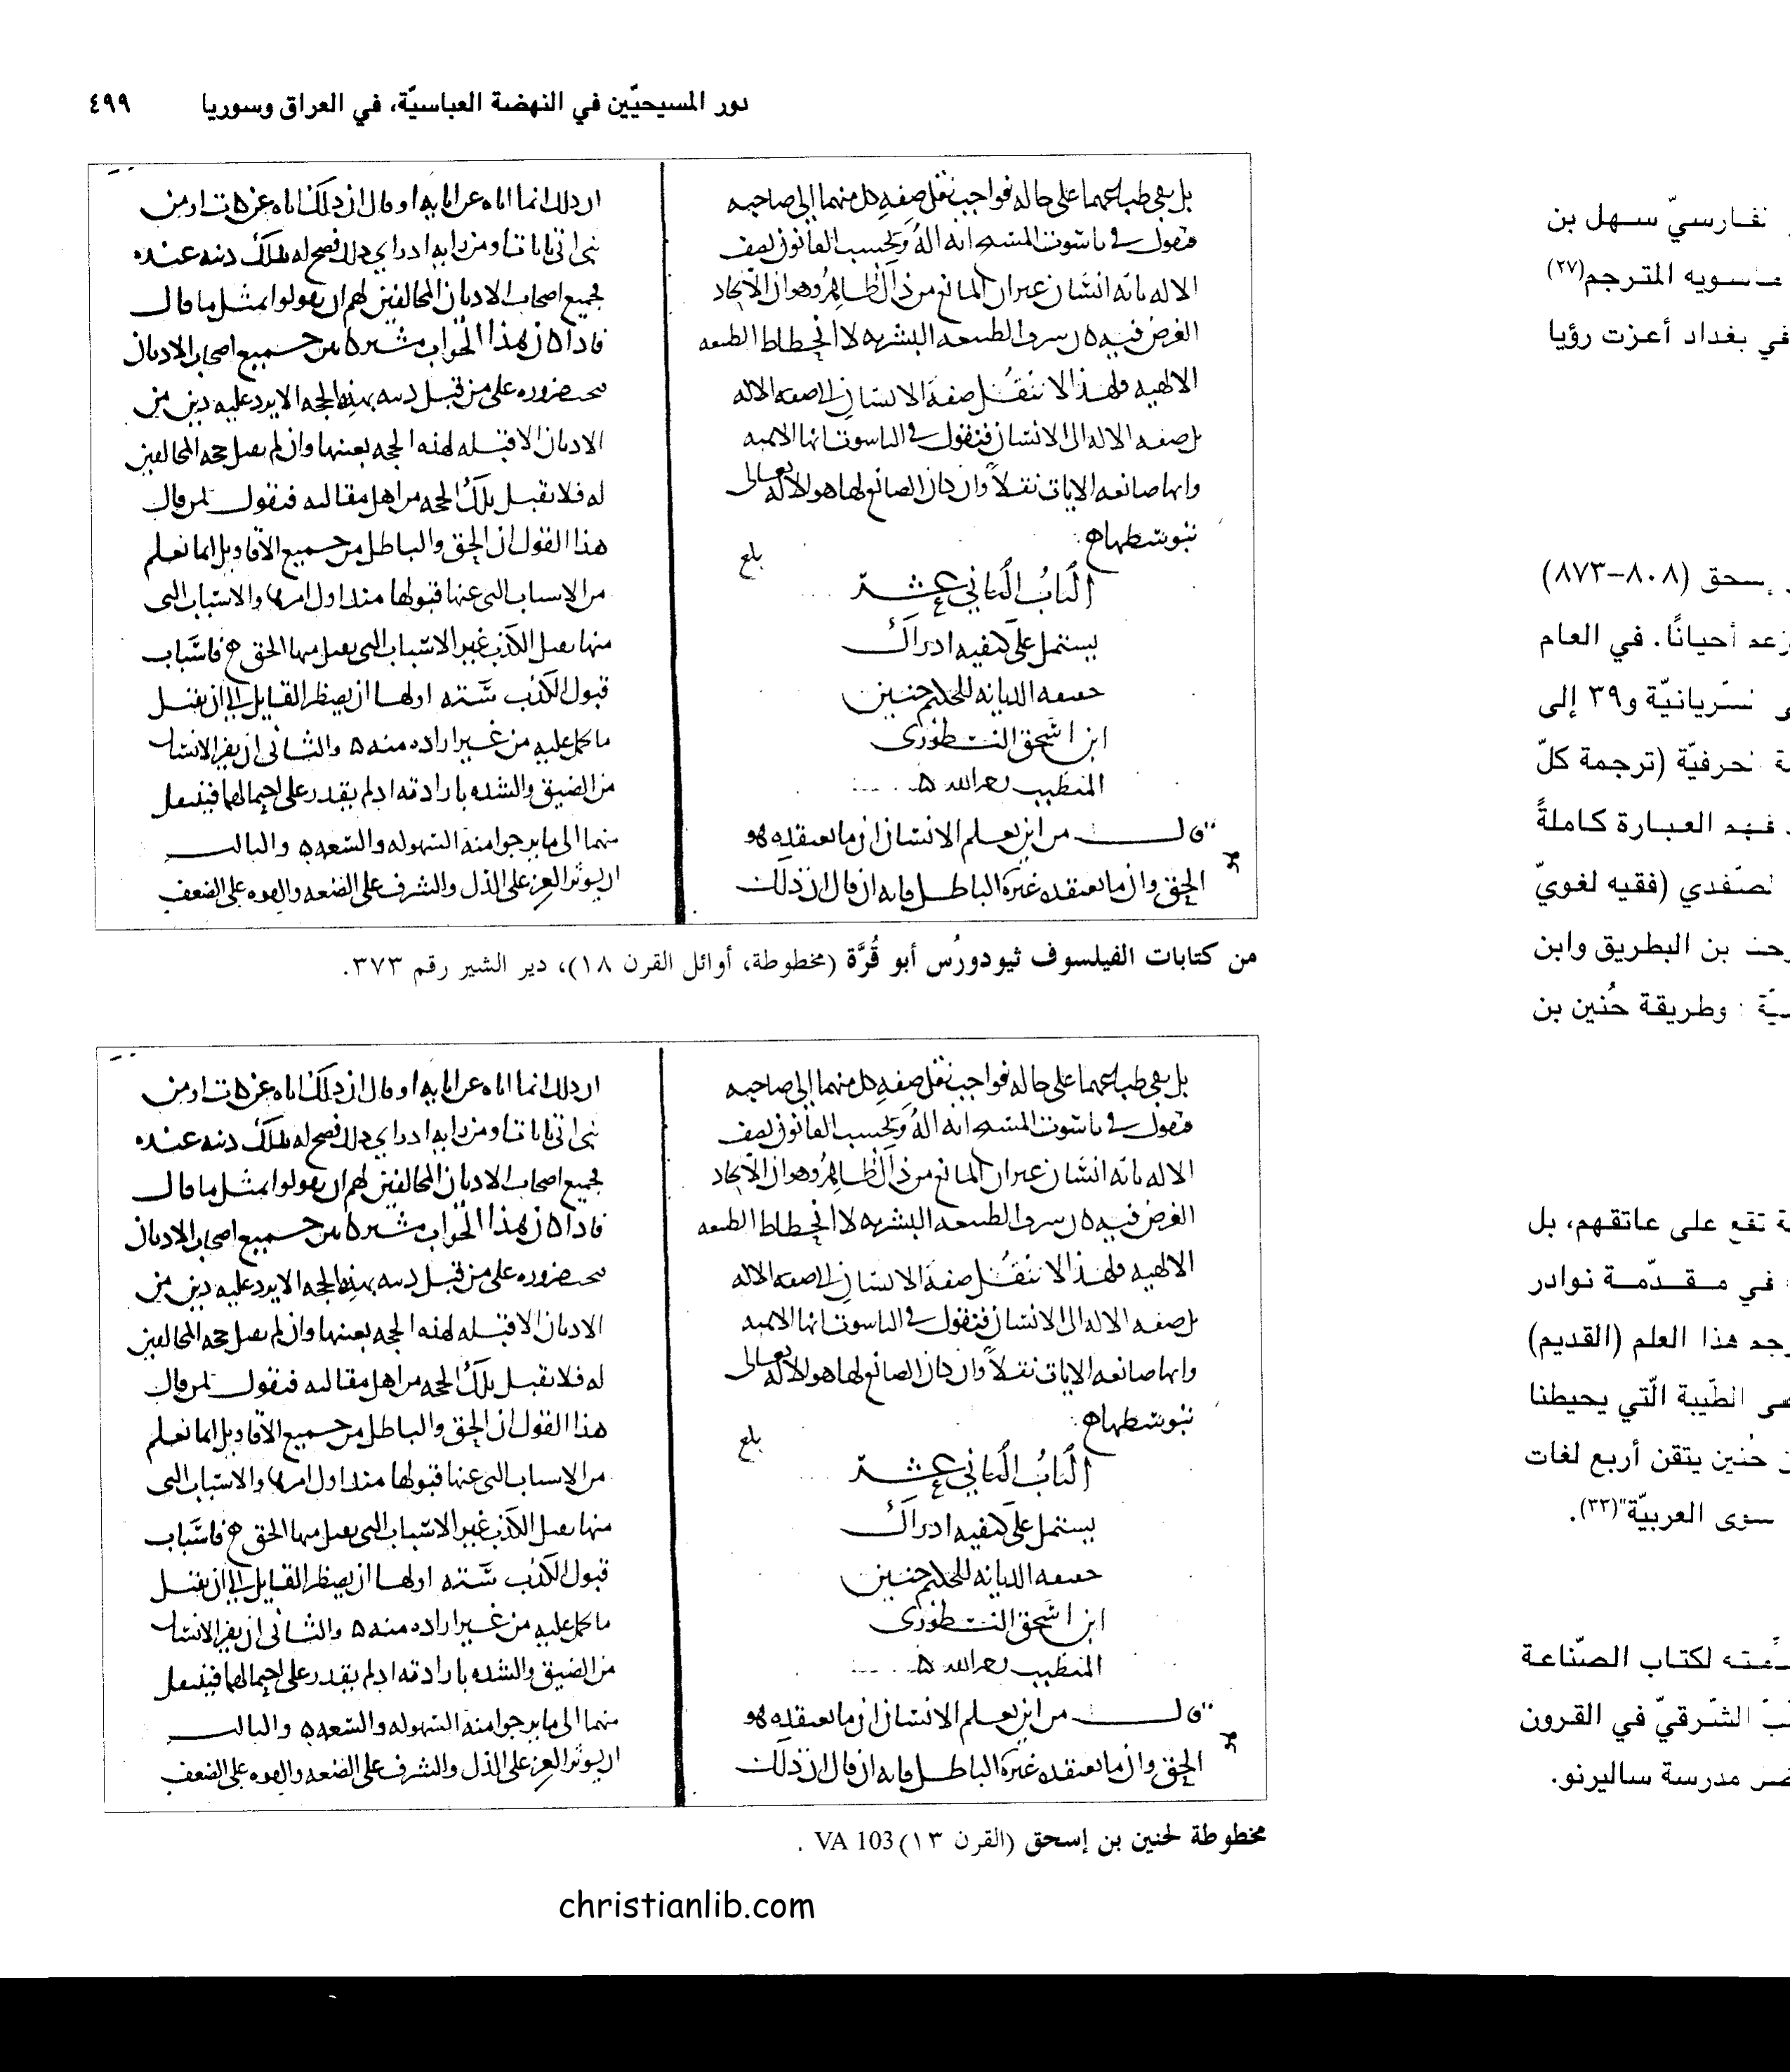 دور المسيحيّين في النهضة العباسيّة، في العراق وسوريا ٤٩٩
بل بقي طباعهما على حاله فواجب نقل صفه كل منهما الى صاحبه
فنقول في ناسوت المسيح انه اله وبحسب القانون نصف
الاله بانه انسان غير ان المانع من ذلك ظاهر وهو ان الاتحاد
الغرض فيه تشريف الطبيعه البشريه لا انحطاط الطبيعه
الالهيه ولهذا لا ننقل صفة الانسان الى صفه الاله
بل صفه الاله الى الانسان فنقول في الناسوت انها الاهيه
وانها صانعه الايات نقلاً وان كان الصانع لها هو الاله تعالى
بتوسطها
بلغ
الباب الثاني عشر
يشتمل على كيفيه ادراك
حقيقه الديانه للحكيم حنين
ابن اسحق النسطورى
المتطبب رحمه الله
قال من اين يعلم الانسان ان ما يعتقده هو
الحق وان ما يعتقده غيره الباطل فانه ان قال ان ذلك
ان ذلك انما اتاه عن ابايه او قال ان ذلك اتاه عن كتاب او من
نبى اتى بايات او من رايه اذ راى ذلك فصح له بذلك دينه عنده
فجميع اصحاب الاديان المخالفين لهم ان يقولوا مثل ما قال
فاذا كان هذا الجواب مشتركا بين جميع اصحاب الاديان
ضروره على من قبل دينه بهذه الحجه الا يرد عليه دين من
الاديان الا قبله لهذه الحجه بعينها وان لم يقبل حجه المخالفين
له فلا تقبل تلك الحجه من اهل مقالته فنقول لمن قال
هذا القول ان الحق والباطل من جميع الاقاويل انما تعلم
من الاسباب التى عنها قبولها منذ اول امرها والاسباب التى
منها يقبل الكذب غير الاسباب التى يقبل منها الحق فاسباب
قبول الكذب سته اولها ان يضطر القايل الى ان يقبل
ما حمل عليه من غير اراده منه والثانى ان يفر الانسان
من الضيق والشده بارادته اذ لم يقدر على احتمالهما فينتقل
منهما الى ما يرجوا منه السهوله والسعه والثالث
ان يوثر العز على الذل والشرف على الضعه والقوه على الضعف
من كتابات الفيلسوف ثيودورُس أبو قُرَّة (مخطوطة، أوائل القرن ١٨)، دير الشير رقم ٣٧٣.
بل بقي طباعهما على حاله فواجب نقل صفه كل منهما الى صاحبه
فنقول في ناسوت المسيح انه اله وبحسب القانون نصف
الاله بانه انسان غير ان المانع من ذلك ظاهر وهو ان الاتحاد
الغرض فيه تشريف الطبيعه البشريه لا انحطاط الطبيعه
الالهيه ولهذا لا ننقل صفة الانسان الى صفه الاله
بل صفه الاله الى الانسان فنقول في الناسوت انها الاهيه
وانها صانعه الايات نقلاً وان كان الصانع لها هو الاله تعالى
بتوسطها
بلغ
الباب الثاني عشر
يشتمل على كيفيه ادراك
حقيقه الديانه للحكيم حنين
ابن اسحق النسطورى
المتطبب رحمه الله
قال من اين يعلم الانسان ان ما يعتقده هو
الحق وان ما يعتقده غيره الباطل فانه ان قال ان ذلك
ان ذلك انما اتاه عن ابايه او قال ان ذلك اتاه عن كتاب او من
نبى اتى بايات او من رايه اذ راى ذلك فصح له بذلك دينه عنده
فجميع اصحاب الاديان المخالفين لهم ان يقولوا مثل ما قال
فاذا كان هذا الجواب مشتركا بين جميع اصحاب الاديان
ضروره على من قبل دينه بهذه الحجه الا يرد عليه دين من
الاديان الا قبله لهذه الحجه بعينها وان لم يقبل حجه المخالفين
له فلا تقبل تلك الحجه من اهل مقالته فنقول لمن قال
هذا القول ان الحق والباطل من جميع الاقاويل انما تعلم
من الاسباب التى عنها قبولها منذ اول امرها والاسباب التى
منها يقبل الكذب غير الاسباب التى يقبل منها الحق فاسباب
قبول الكذب سته اولها ان يضطر القايل الى ان يقبل
ما حمل عليه من غير اراده منه والثانى ان يفر الانسان
من الضيق والشده بارادته اذ لم يقدر على احتمالهما فينتقل
منهما الى ما يرجوا منه السهوله والسعه والثالث
ان يوثر العز على الذل والشرف على الضعه والقوه على الضعف
مخطوطة لحنين بن إسحق (القرن ١٣) VA 103 .
christianlib.com
سهل بن
المترجم(٢٧)
في بغداد أعزت رؤيا
(٨٠٨-٨٧٣)
أحيانًا. في العام
و٣٩ إلى
(ترجمة كلّ
العبارة كاملةً
(فقيه لغويّ
بن البطريق وابن
وطريقة حُنين بن
تقع على عاتقهم، بل
في مقدّمة نوادر
هذا العلم (القديم)
الطّيبة الّتي يحيطنا
حُنين يتقن أربع لغات
سوى العربيّة"(٣٣).
لكتاب الصنّاعة
الشّرقيّ في القرون
مدرسة ساليرنو.